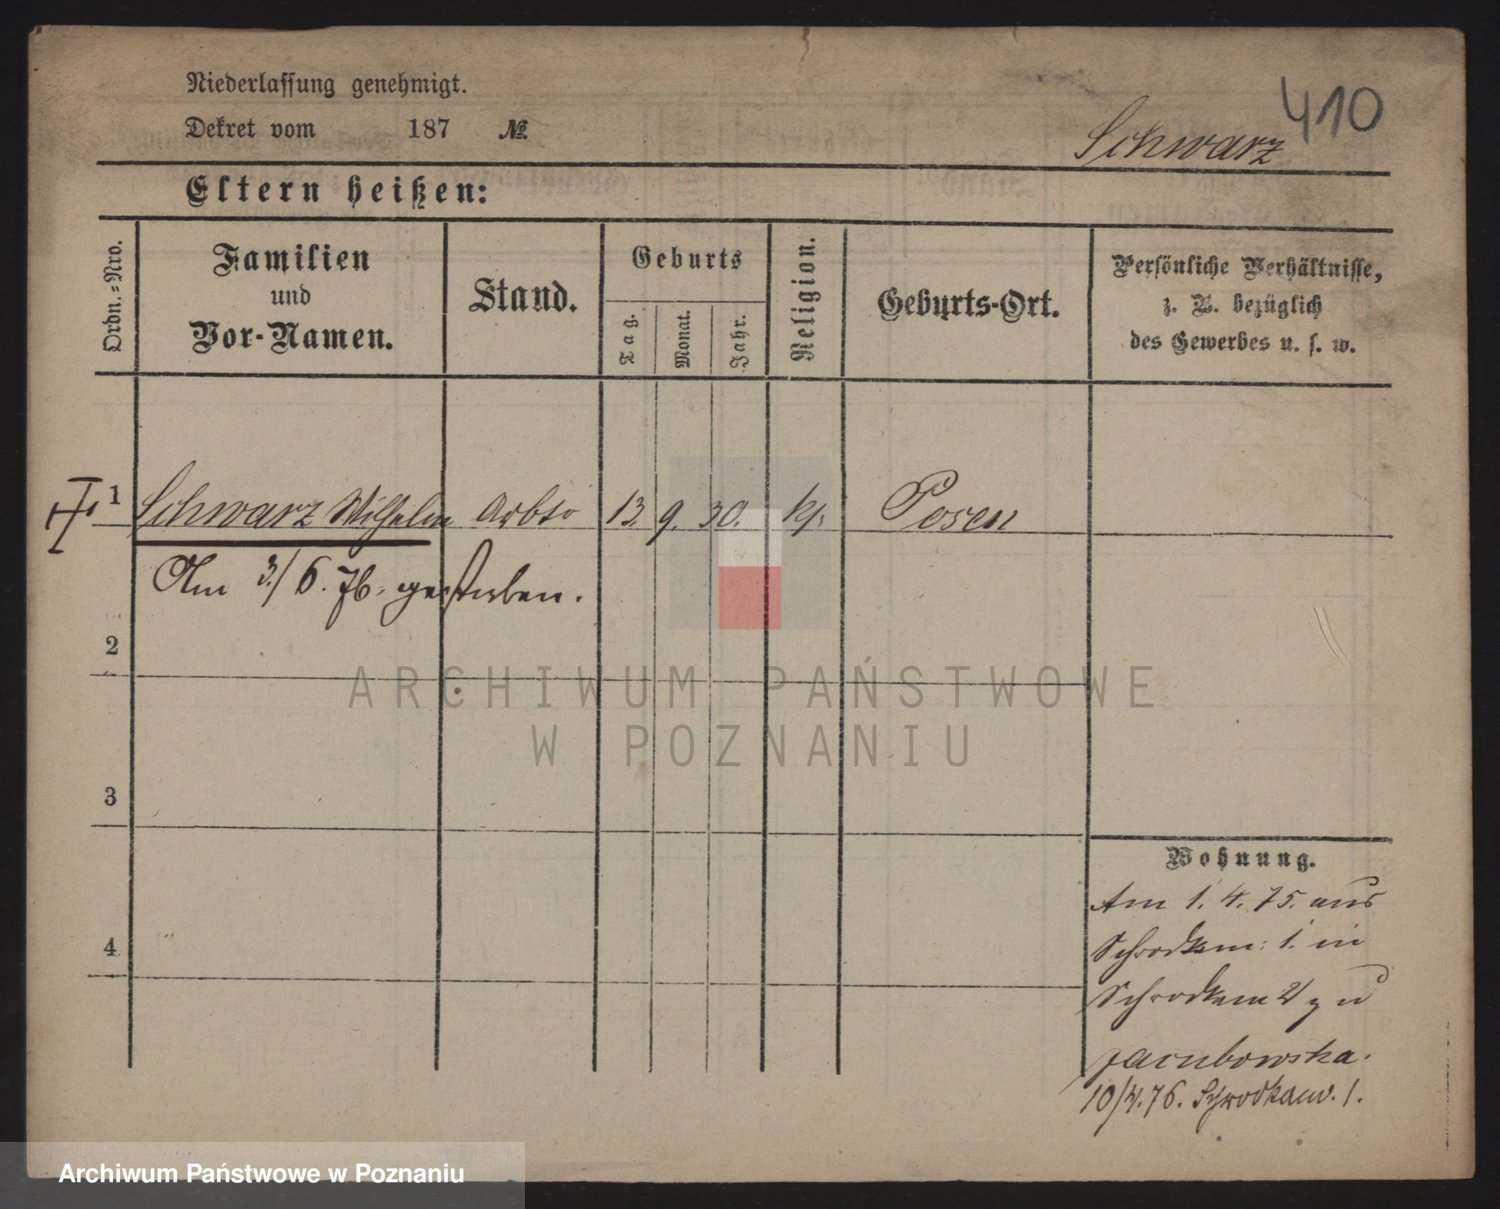 Niederlassung genehmigt.
Dekret vom 187 №
410
Schwarz
Eltern heißen:
Ordn.=Nro.
Familien
und
Vor-Namen.
Stand.
Geburts
Tag.
Monat.
Jahr.
Religion.
Geburts-Ort.
Persönliche Verhältnisse,
z. B. bezüglich
des Gewerbes u. s. w.
1 Schwarz Wilhelm Arbtr 13. 9. 30. kp. Posen
Am 3./6. 76. gestorben.
2
3
4
Wohnung.
Am 1. 4. 75. aus
Schrodkam: 1. in
Schrodkam 2 zu
Jacubowska.
10/4. 76. Schrodkam. 1.
ARCHIWUM PAŃSTWOWE
W POZNANIU
Archiwum Państwowe w Poznaniu